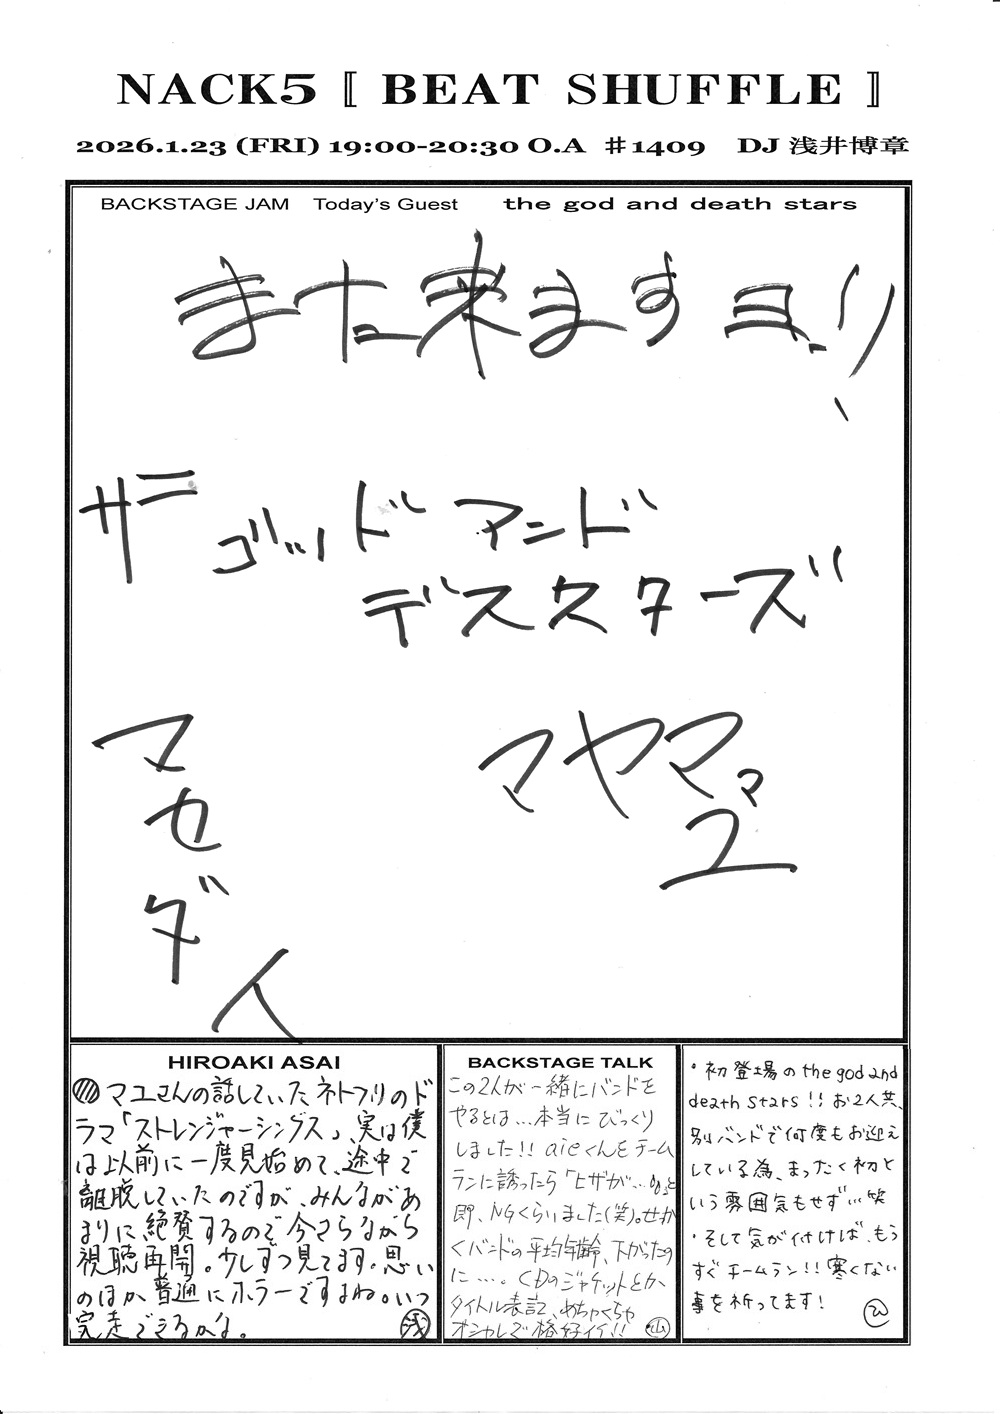 NACK5〚 BEAT SHUFFLE 〛
2026.1.23 (FRI) 19:00-20:30 O.A ♯1409 DJ 浅井博章
BACKSTAGE JAM Today's Guest the god and death stars
また来ますヨ!!
ザ ゴッド アンド
デススターズ
マセダ人
マヤママユ
HIROAKI ASAI
マユさんの話していたネトフリのド
ラマ「ストレンジャーシングス」、実は僕
は以前に一度見始めて、途中で
離脱していたのですが、みんながあ
まりに絶賛するので今さらながら
視聴再開。少しずつ見てます。思い
のほか普通にホラーですよね。いつ
完走できるかな。
浅
BACKSTAGE TALK
この2人が一緒にバンドを
やるとは…本当にびっくり
しました!! aieくんをチーム
ランに誘ったら「ヒザが…」と
即、NGくらいました(笑)。せっか
くバンドの平均年齢、下がったの
に…。CDのジャケットとか、
タイトル表記、めちゃくちゃ
オシャレで格好イイ!!
山
・初登場のthe god and
death stars!! お2人共、
別バンドで何度もお迎え
している為、まったく初と
いう雰囲気もせず…笑
・そして気が付けば、もう
すぐチームラン!! 寒くない
事を祈ってます!
ひ